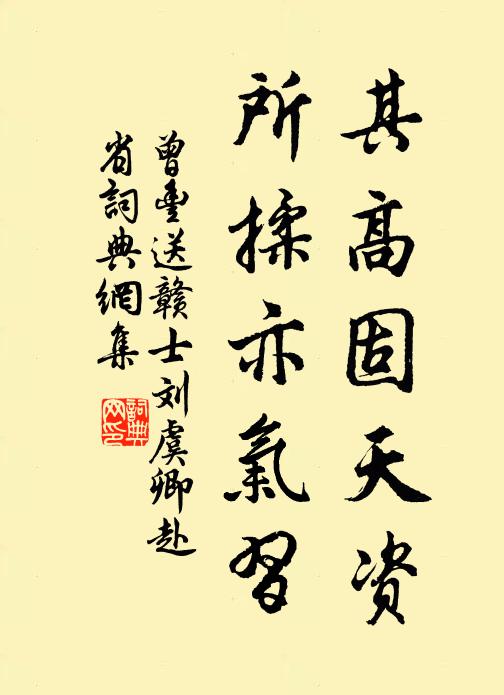 其高固天资
所揉亦氣習
曾豐送贛士刘虞卿赴
省詞典網集
詞典
网印